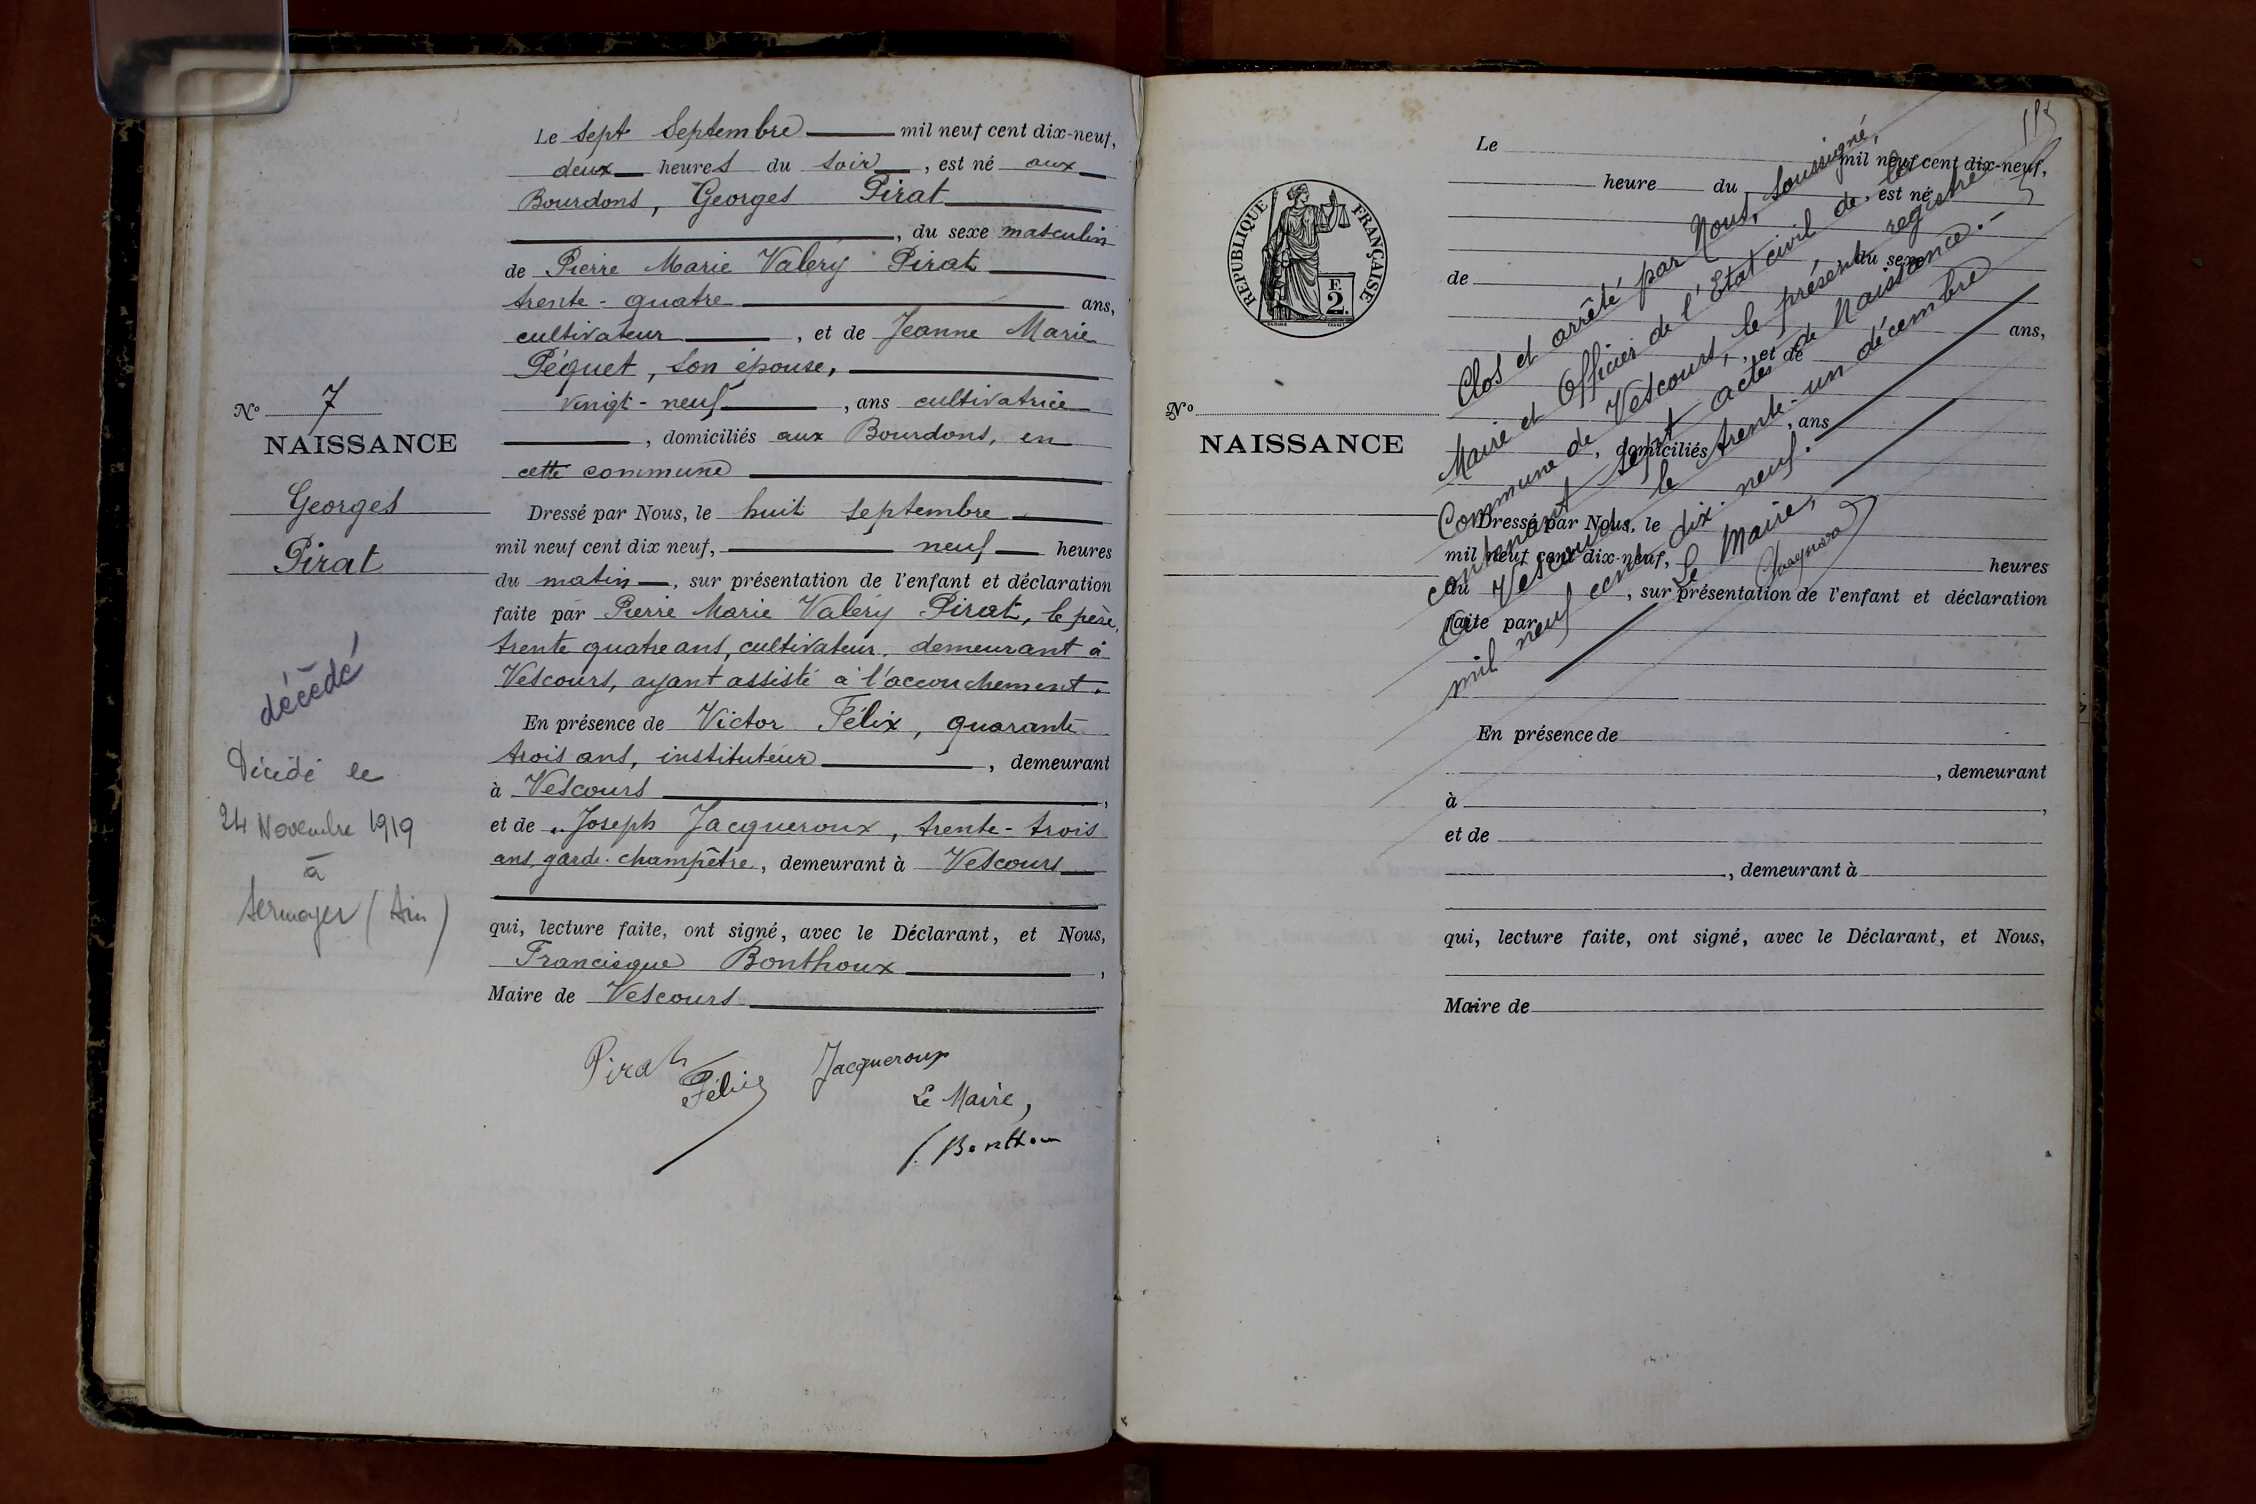 Le sept Septembre mil neuf cent dix-neuf,
deux heures du soir, est né aux
Bourdons, Georges Pirat
, du sexe masculin
de Pierre Marie Valéry Pirat
trente-quatre ans,
cultivateur, et de Jeanne Marie
Péquet, son épouse,
vingt-neuf, ans cultivatrice
, domiciliés aux Bourdons, en
cette commune
Dressé par Nous, le huit septembre
mil neuf cent dix neuf, neuf heures
du matin, sur présentation de l'enfant et déclaration
faite par Pierre Marie Valéry Pirat, le père,
trente quatre ans, cultivateur, demeurant à
Vescours, ayant assisté à l'accouchement.
En présence de Victor Félix, quarante
trois ans, instituteur, demeurant
à Vescours,
et de Joseph Jacqueroux, trente-trois
ans, garde-champêtre, demeurant à Vescours
qui, lecture faite, ont signé, avec le Déclarant, et Nous,
Francisque Bonthoux,
Maire de Vescours
Pirat
Félix
Jacqueroux
Le Maire,
F. Bonthoux
No 7
NAISSANCE
Georges
Pirat
décédé
Décédé le
24 Novembre 1919
à
Sermoyer (Ain)
RÉPUBLIQUE FRANÇAISE
F.
2.
No
NAISSANCE
Le
mil neuf cent dix-neuf,
heure du , est né
du sexe
de
ans,
, et de
, ans
, domiciliés
Dressé par Nous, le
mil neuf cent dix-neuf, heures
du , sur présentation de l'enfant et déclaration
faite par
En présence de
, demeurant
à ,
et de
, demeurant à
qui, lecture faite, ont signé, avec le Déclarant, et Nous,
Maire de
Clos et arrêté par Nous, soussigné,
Maire et Officier de l'Etat civil de la
Commune de Vescours, le présent registre
contenant sept actes de Naissance.
A Vescours le trente-un décembre
mil neuf cent dix-neuf.
Le Maire,